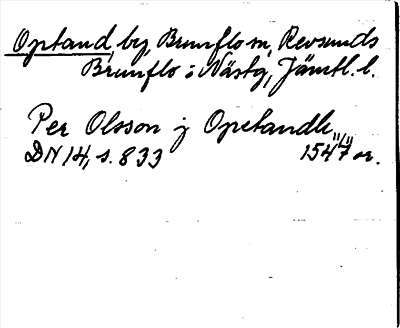 Optand, by, Brunflo sn, Revsunds
Brunflo o Näskg, Jämtl. l.
Per Olsson j Opetandh
DN 14, s. 833 11/11 1547 or.